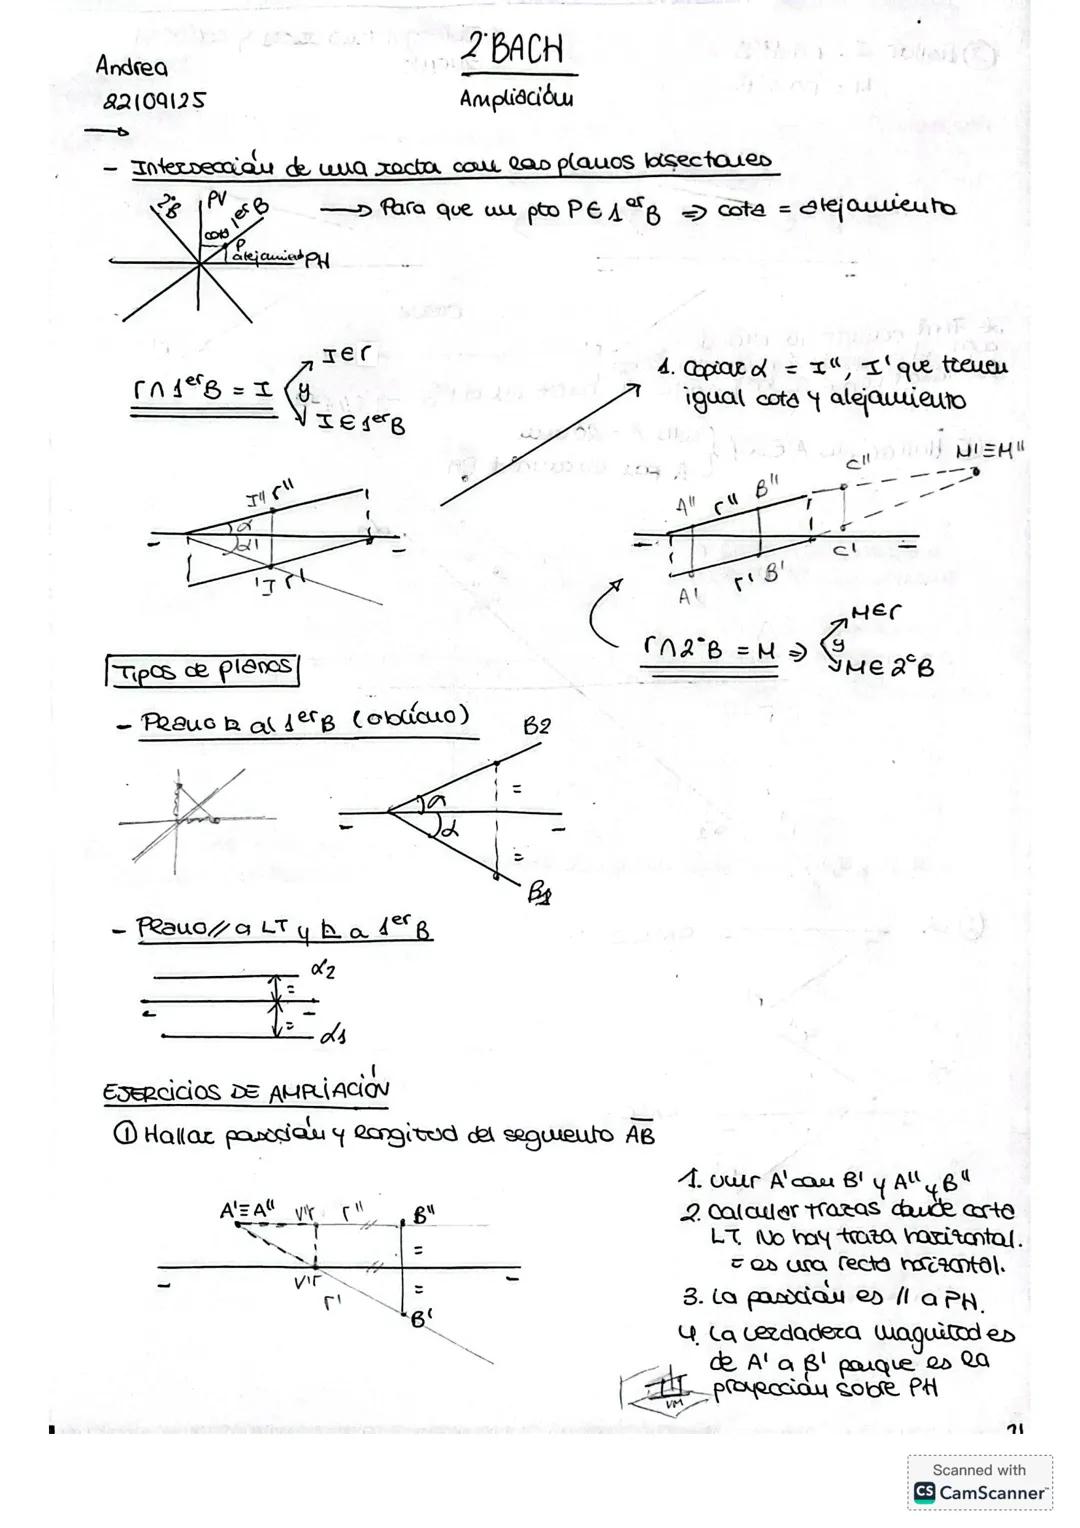 2º BACH
Andrea
22109125
Ampliación
- Intersección de una recta con los planos bisectores
2ºB
PV
1er B
cota
P
alejamiento PH
→ Para que un pto P ∈ 1er B ⇒ cota = alejamiento
r ∩ 1er B = I
I ∈ r
y
I ∈ 1er B
1. Copiar α = I'', I' que tienen
igual cota y alejamiento
I'' r''
α
α'
'I r'
A'' r'' B'' C'' M'≡M''
A' r' B' C'
r ∩ 2º B = M ⇒
M ∈ r
y
M ∈ 2º B
Tipos de planos
- Plano ⊥ al 1er B (oblicuo)
B2
α
=
α
=
B1
- Plano // a LT y ⊥ a 1er B
α2
=
=
α1
EJERCICIOS DE AMPLIACIÓN
① Hallar posición y longitud del segmento AB
A'≡A'' V''r r'' B''
=
V'r
=
r'
B'
1. Unir A' con B' y A'' y B''
2. Calcular trazas donde corte
LT. No hay traza horizontal.
= es una recta horizontal.
3. La posición es // a PH.
4. La verdadera magnitud es
de A' a B' porque es la
proyección sobre PH
VM
21
Scanned with
CS CamScanner